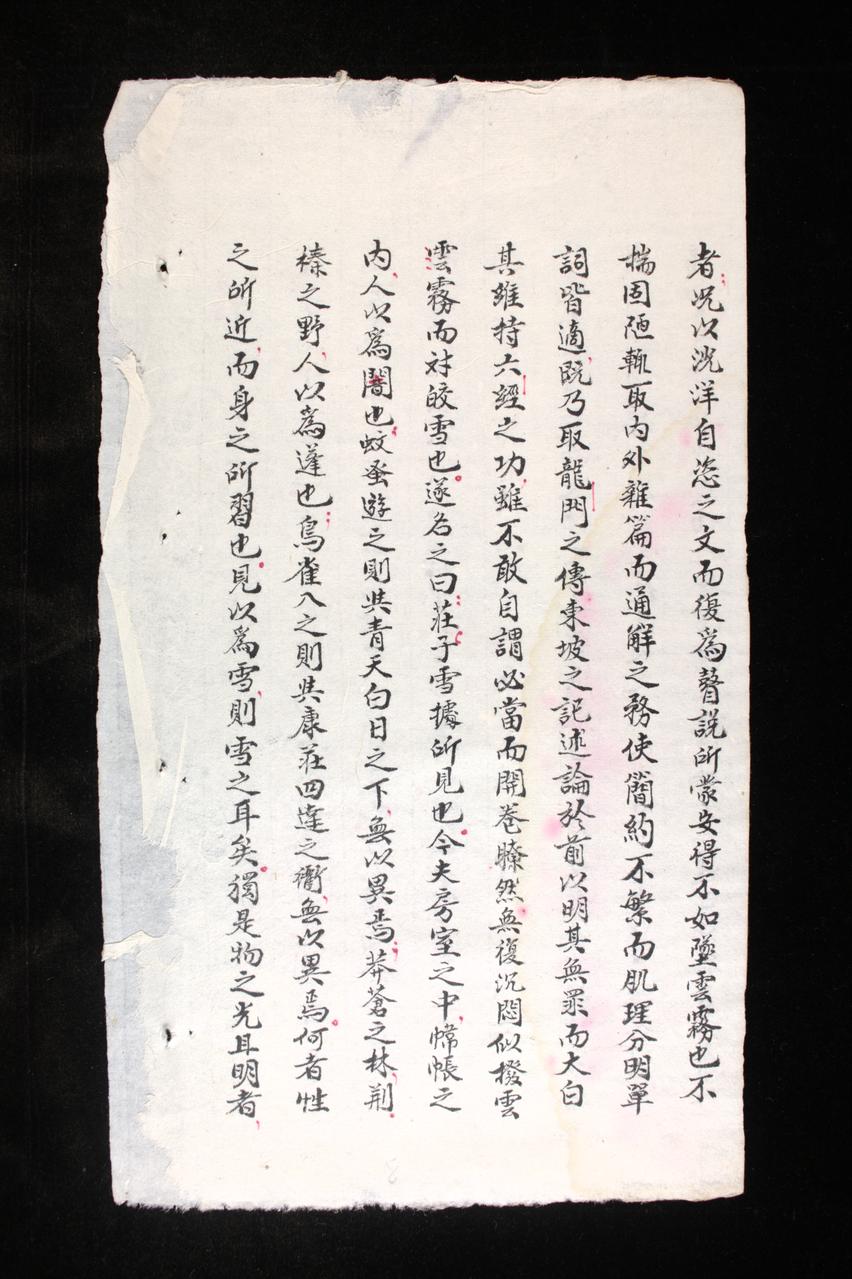 者況以洸洋自恣之文而復爲瞽説所蒙安得不如墜雲霧也不
揣固陋輒取內外雜篇而通解之務使簡約不繁而肌理分明單
詞皆適旣乃取龍門之傳東坡之記述論於前以明其無罪而大白
其維持六經之功雖不敢自謂必當而開卷瞭然無復沉悶似撥雲
雲霧而对皎雪也遂名之曰莊子雪據所見也今夫房室之中幃帳之
內人以爲闇也蚊蚤遊之則與青天白日之下無以異焉莽蒼之林荆
榛之野人以爲蓬也鳥雀入之則與康莊四達之衢無以異焉何者性
之所近而身之所習也見以爲雪則雪之耳矣獨是物之光且明者